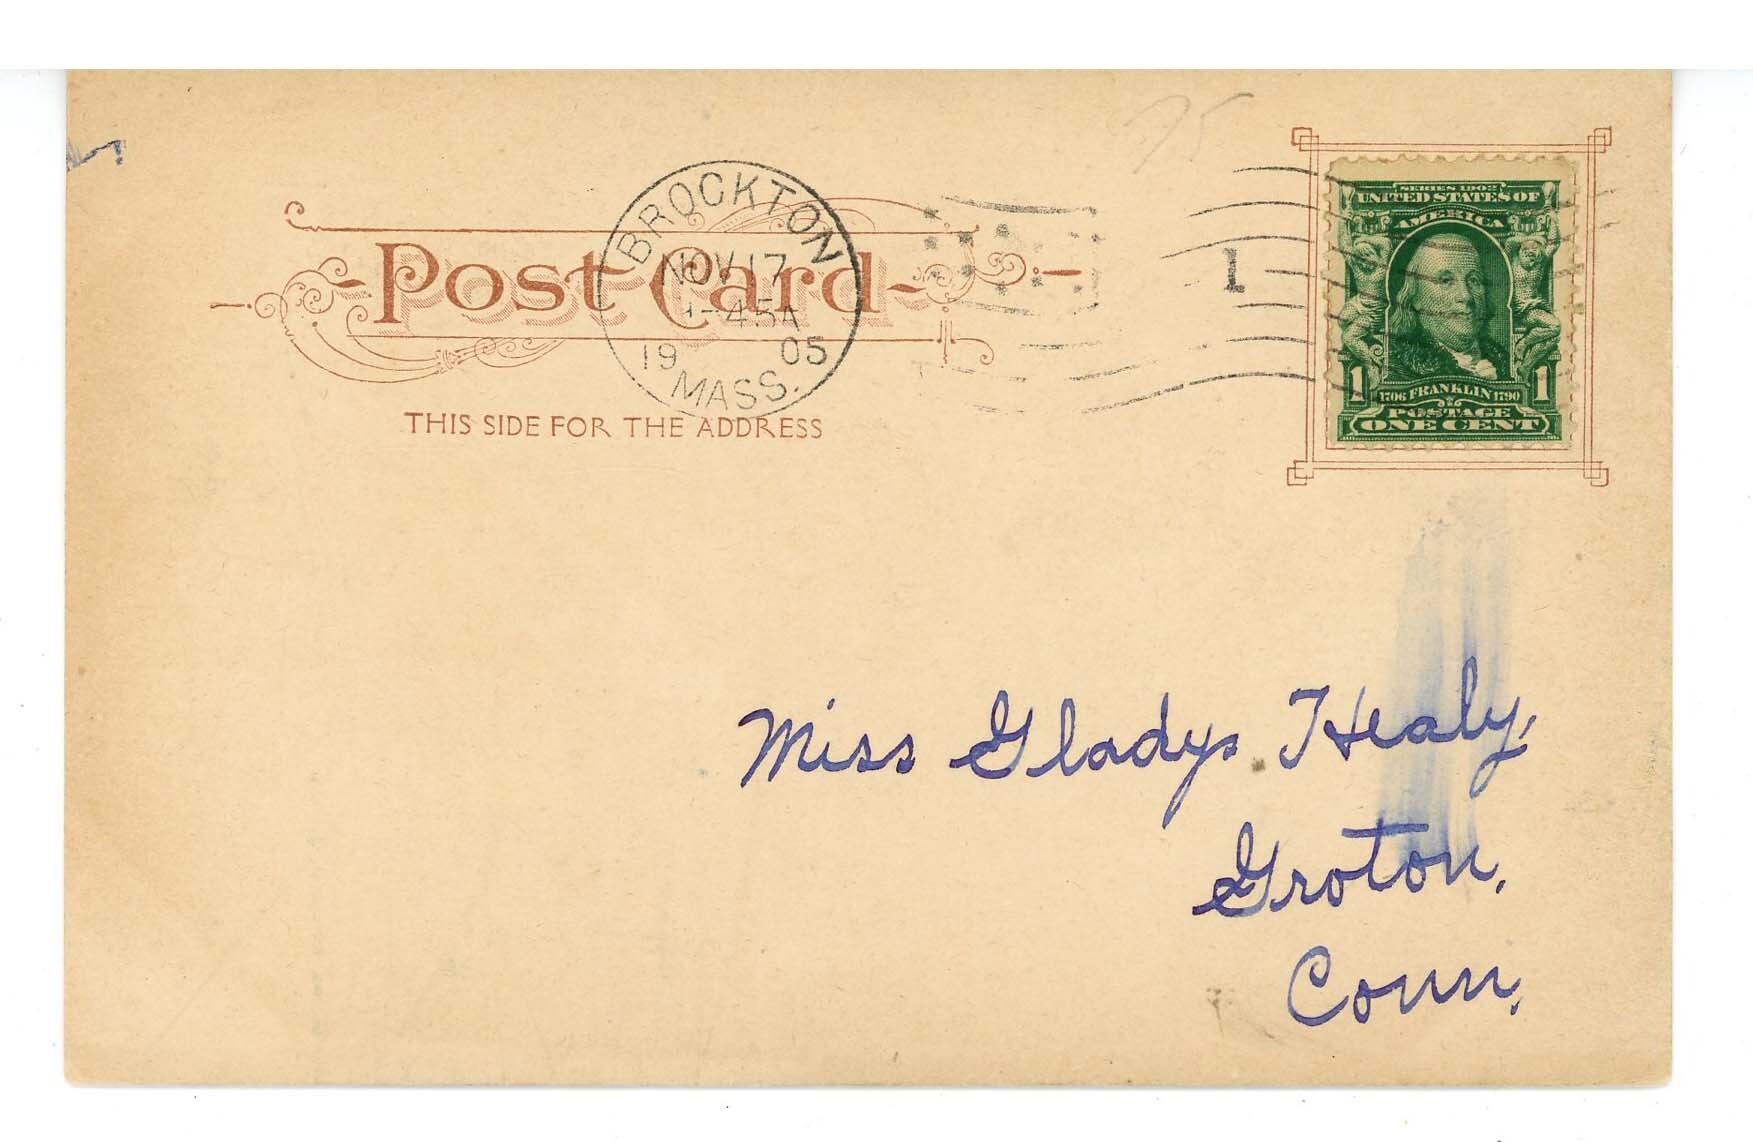 75
BROCKTON
NOV 17
-45A
19 05
MASS.
1
Post Card
THIS SIDE FOR THE ADDRESS
SERIES 1902
UNITED STATES OF
AMERICA
1 1
1706 FRANKLIN 1790
POSTAGE
ONE CENT
Miss Gladys Healy,
Groton,
Conn.